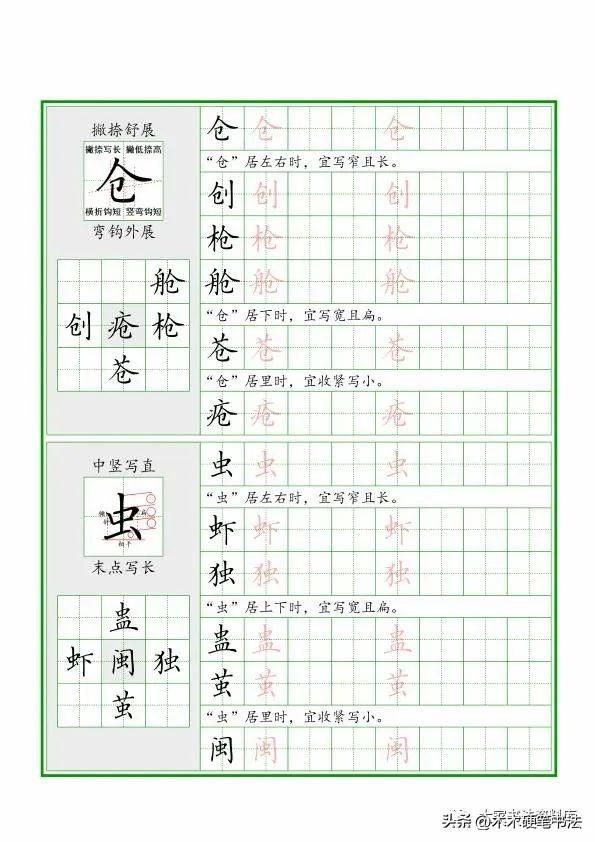 撇捺舒展
撇捺写长 撇低捺高
仓
横折钩短 竖弯钩短
弯钩外展
舱
创 疮 枪
苍
仓 仓 仓
“仓”居左右时，宜写窄且长。
创 创 创
枪 枪 枪
舱 舱 舱
“仓”居下时，宜写宽且扁。
苍 苍 苍
“仓”居里时，宜收紧写小。
疮 疮 疮
中竖写直
虫
扁
相平
末点写长
蛊
虾 闽 独
茧
虫 虫 虫
“虫”居左右时，宜写窄且长。
虾 虾 虾
独 独 独
“虫”居上下时，宜写宽且扁。
蛊 蛊 蛊
茧 茧 茧
“虫”居里时，宜收紧写小。
闽 闽 闽
头条 @木木硬笔书法